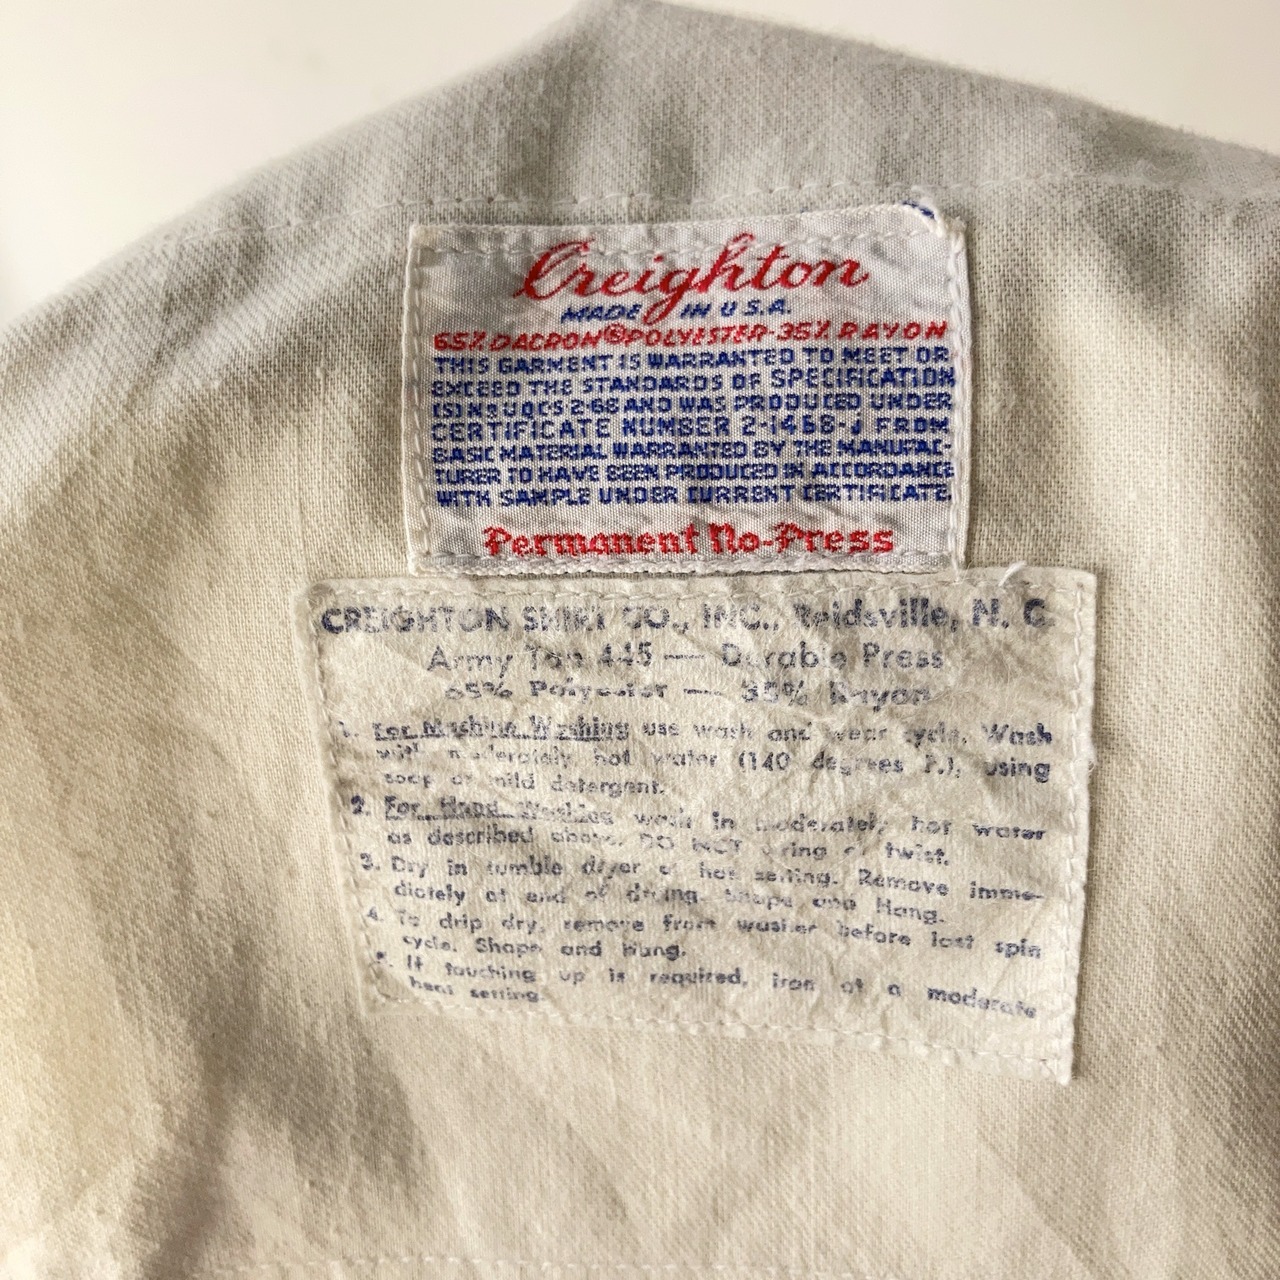 Creighton
MADE IN U.S.A.
65% DACRON® POLYESTER-35% RAYON
THIS GARMENT IS WARRANTED TO MEET OR
EXCEED THE STANDARDS OF SPECIFICATION
(S) NS UQCS 2-68 AND WAS PRODUCED UNDER
CERTIFICATE NUMBER 2-1458-J FROM
BASIC MATERIAL WARRANTED BY THE MANUFAC-
TURER TO HAVE BEEN PRODUCED IN ACCORDANCE
WITH SAMPLE UNDER CURRENT CERTIFICATE.
Permanent No-Press
CREIGHTON SHIRT CO., INC., Reidsville, N. C.
Army Tan 445 — Durable Press
65% Polyester — 35% Rayon
1. For Machine Washing use wash and wear cycle. Wash
with moderately hot water (140 degrees F.), using
soap or mild detergent.
2. For Hand Washing wash in moderately hot water
as described above. DO NOT wring or twist.
3. Dry in tumble dryer at hot setting. Remove imme-
diately at end of drying. Shape and Hang.
4. To drip dry, remove from washer before last spin
cycle. Shape and Hang.
5. If touching up is required, iron at a moderate
heat setting.